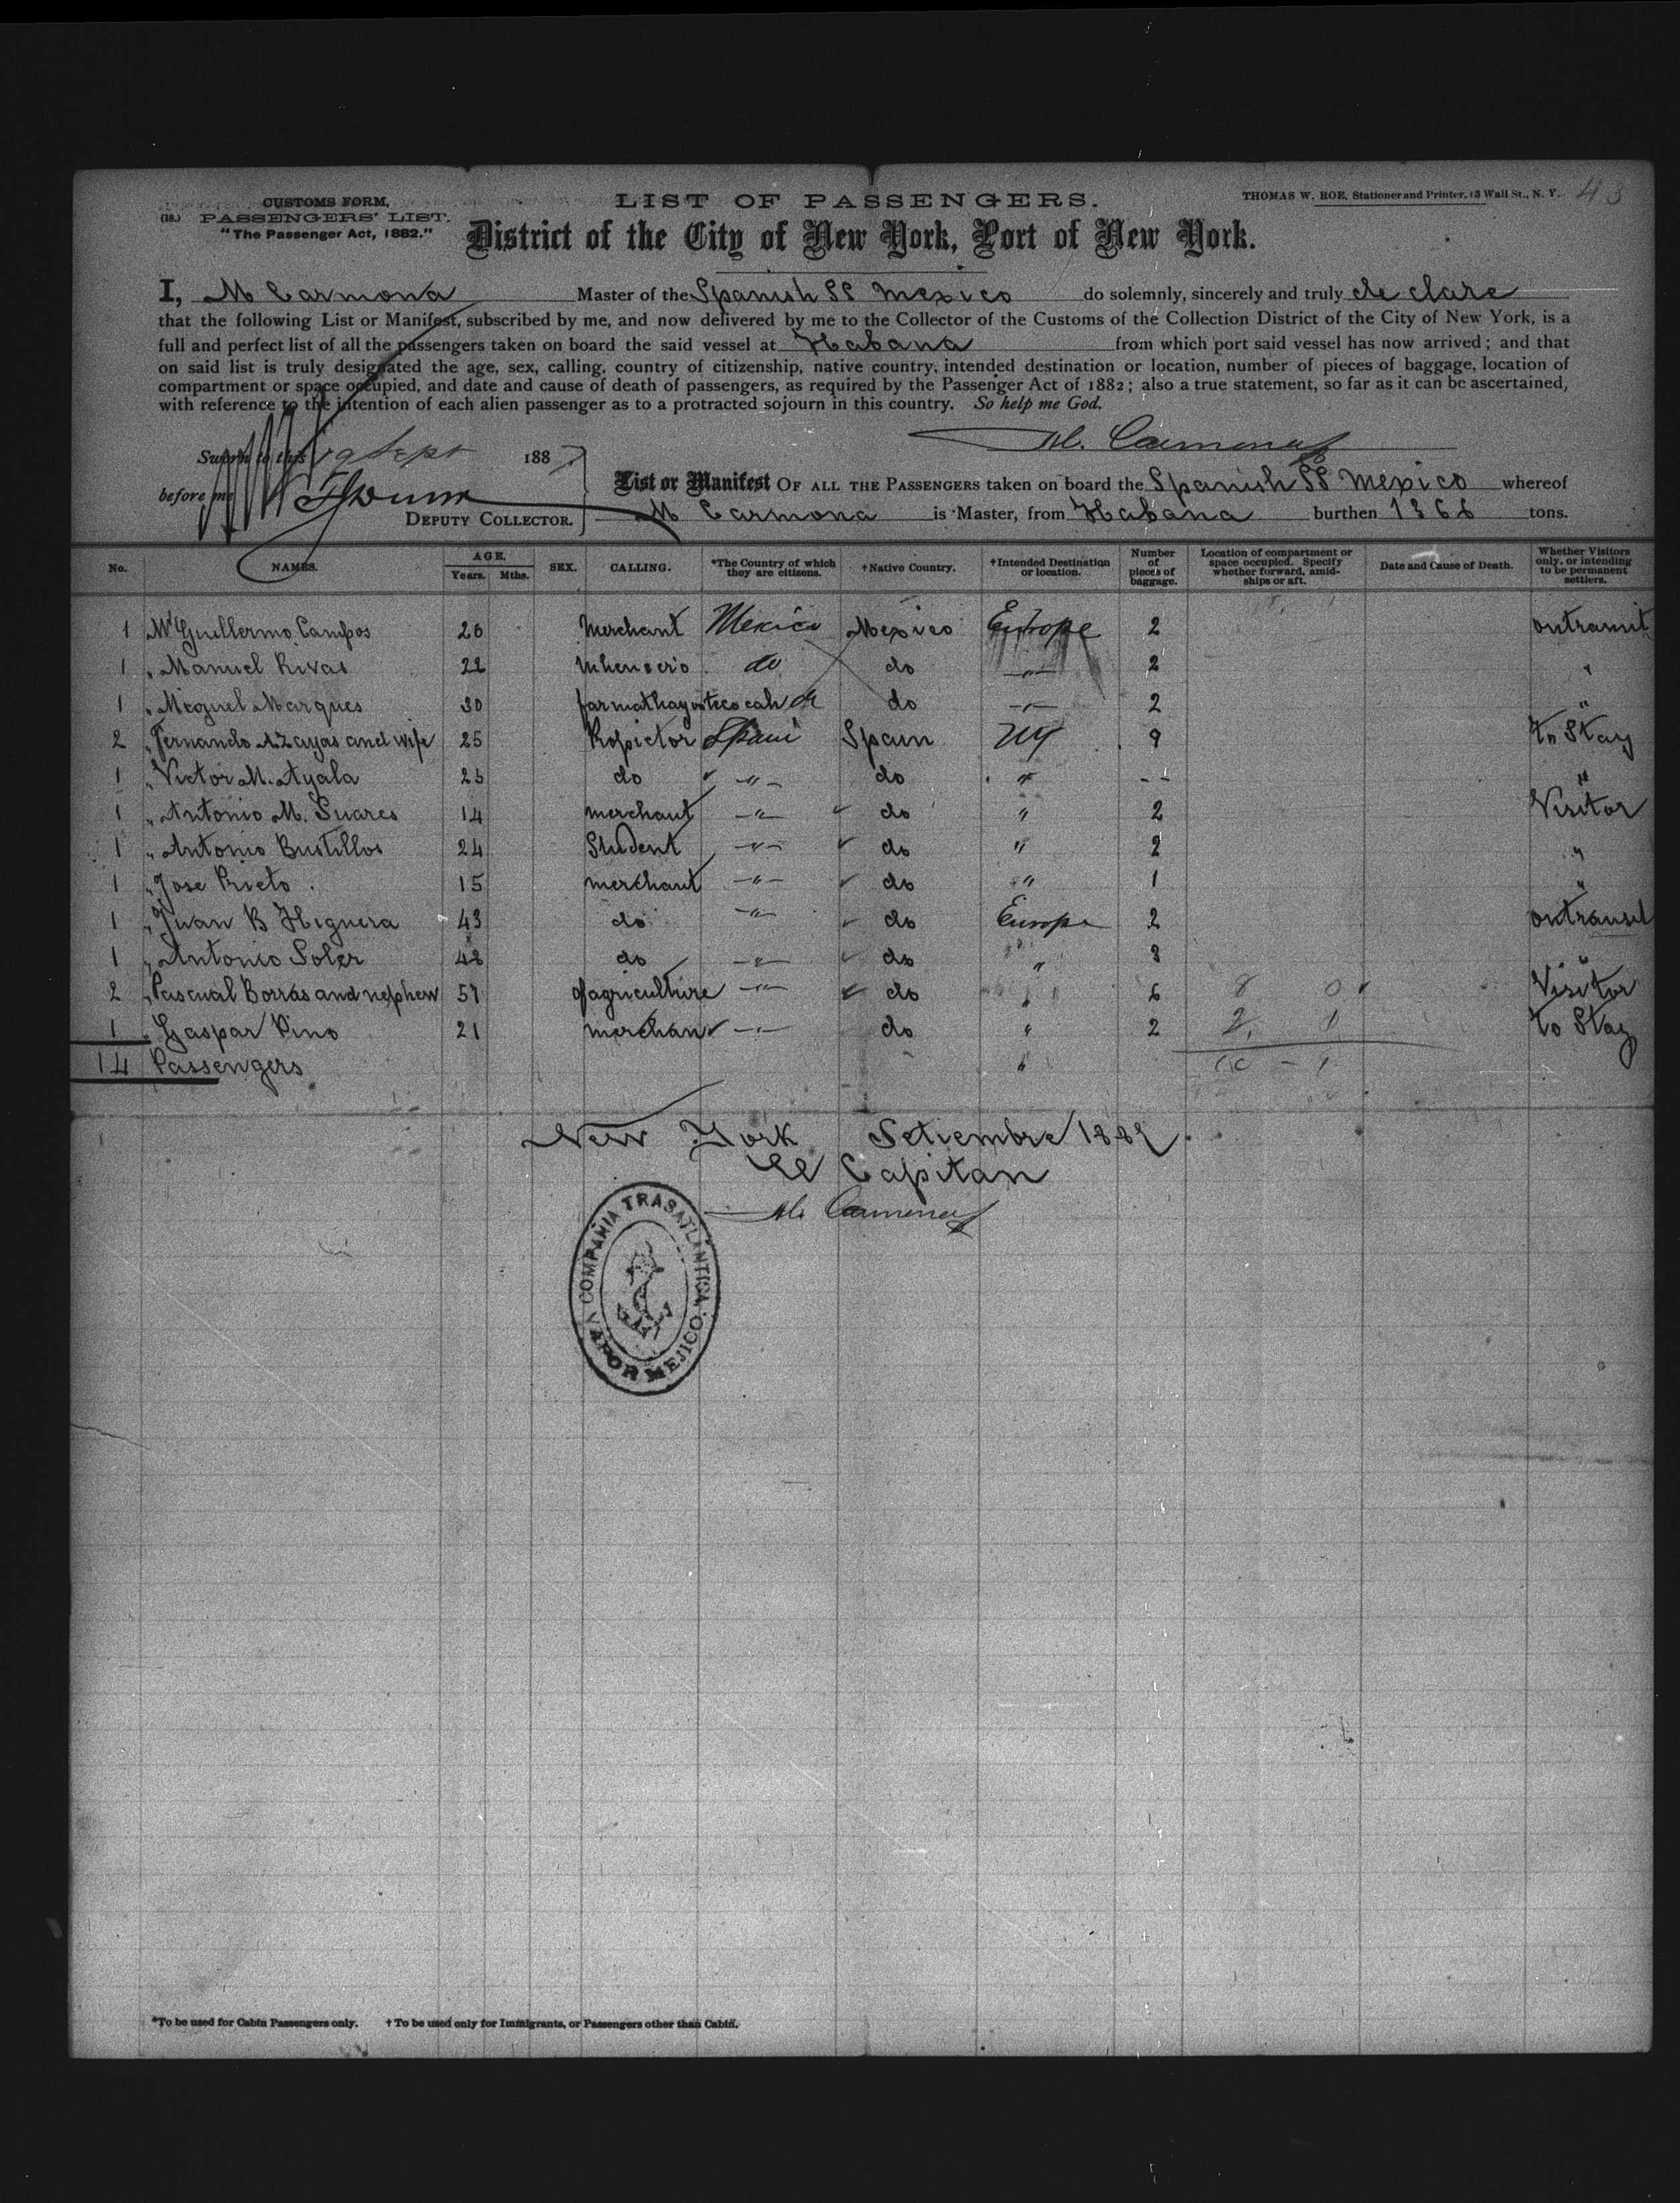 43
CUSTOMS FORM.
(18.) PASSENGERS' LIST.
"The Passenger Act, 1882."
LIST OF PASSENGERS.
THOMAS W. ROE, Stationer and Printer, 13 Wall St., N. Y.
District of the City of New York, Port of New York.
I, M Carmona Master of the Spanish SS Mexico do solemnly, sincerely and truly declare
that the following List or Manifest, subscribed by me, and now delivered by me to the Collector of the Customs of the Collection District of the City of New York, is a
full and perfect list of all the passengers taken on board the said vessel at Habana from which port said vessel has now arrived; and that
on said list is truly designated the age, sex, calling, country of citizenship, native country, intended destination or location, number of pieces of baggage, location of
compartment or space occupied, and date and cause of death of passengers, as required by the Passenger Act of 1882; also a true statement, so far as it can be ascertained,
with reference to the intention of each alien passenger as to a protracted sojourn in this country. So help me God.
M. Carmona
Sworn to this 19 Sept 1887
before me
DEPUTY COLLECTOR.
List or Manifest OF ALL THE PASSENGERS taken on board the Spanish SS Mexico whereof
M Carmona is Master, from Habana burthen 1366 tons.
No. NAMES. AGE. Years. Mths. SEX. CALLING. *The Country of which they are citizens. †Native Country. †Intended Destination or location. Number of pieces of baggage. Location of compartment or space occupied. Specify whether forward, amidships or aft. Date and Cause of Death. Whether Visitors only, or intending to be permanent settlers.
1 Mr Guillermo Campos 26 Merchant Mexico Mexico Europe 2 ontransit
1 " Manuel Rivas 22 do do —"— 2 "
1 " Miguel Marques 30 do —"— 2 "
2 " Fernando A Zayas and wife 25 Ropietor Spain Spain NY 9 To Stay
1 " Victor M. Ayala 25 do —"— do " -- "
1 " Antonio M. Suares 14 merchant —"— do " 2 Visitor
1 " Antonio Bustillos 24 Student —"— do " 2 "
1 " Jose Prieto 15 merchant —"— do " 1 "
1 " Juan B Higuera 43 do —"— do Europe 2 ontransit
1 " Antonio Soler 48 do —"— do " 3 "
2 " Pascual Borras and nephew 57 of agriculture —"— do " 6 8 0 Visitor
1 " Gaspar Pino 21 merchan —"— do " 2 2 1 To Stay
14 Passengers " 10 - 1
New York Setiembre 1887.
El Capitan
M. Carmona
COMPAÑIA TRASATLANTICA
VAPOR MEJICO
*To be used for Cabin Passengers only. † To be used only for Immigrants, or Passengers other than Cabin.